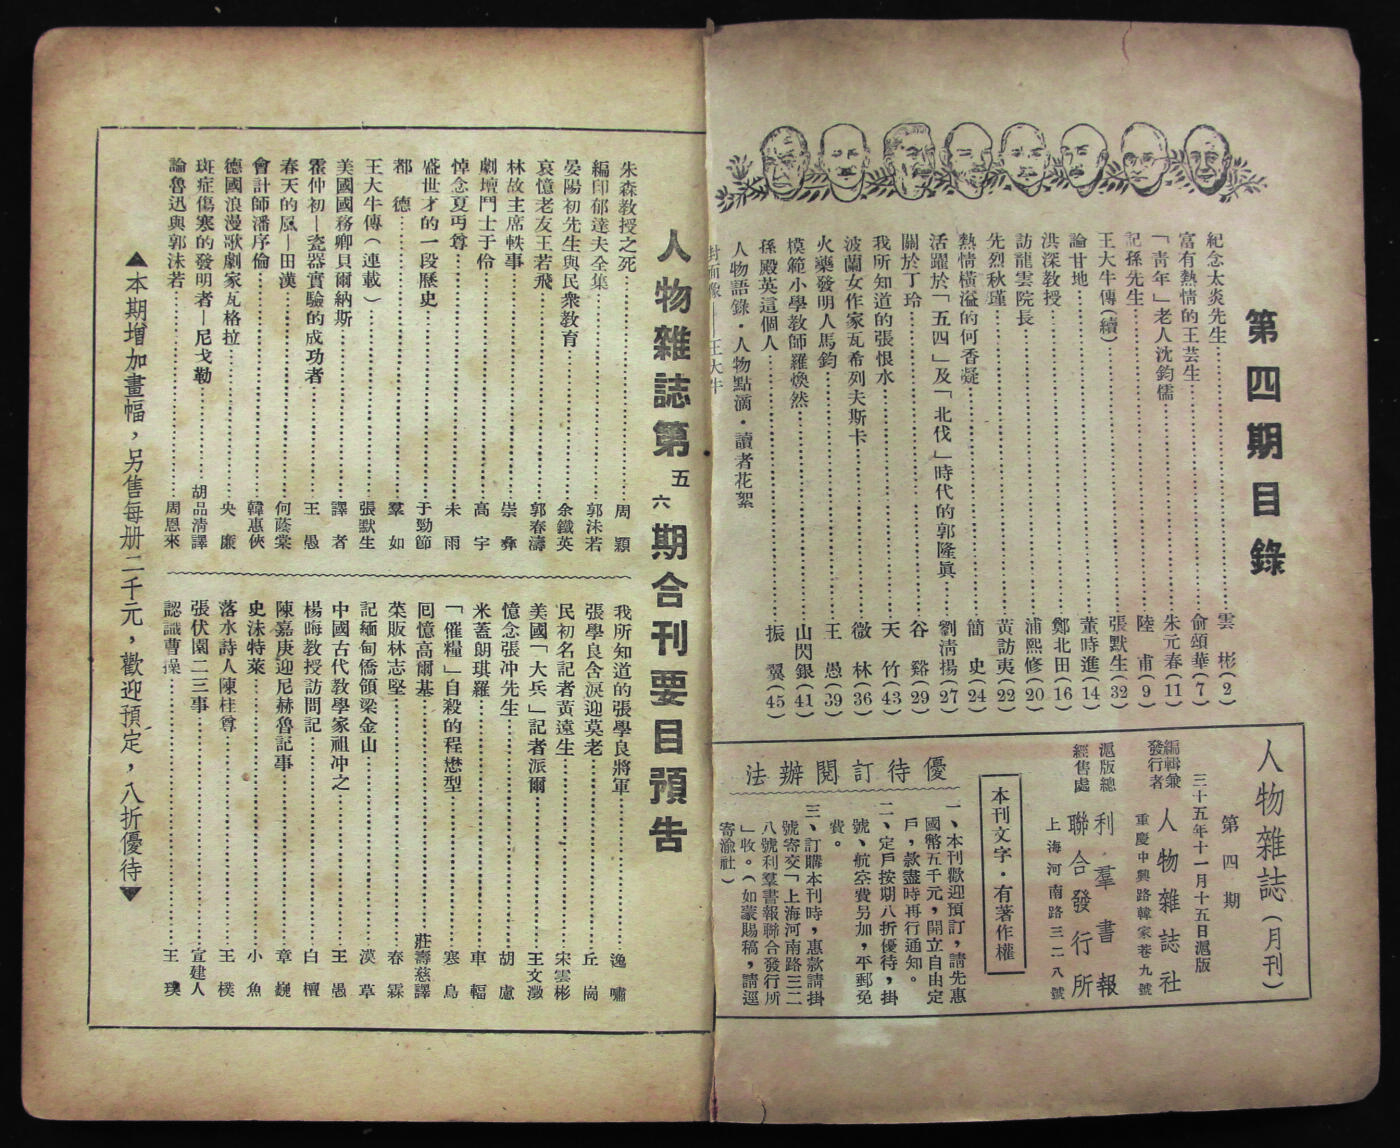 第四期目錄
紀念太炎先生……雲　彬(2)
富有熱情的王芸生……俞頌華(7)
「青年」老人沈鈞儒……朱元春(11)
記孫先生……陸　甫(9)
王大牛傳(續)……張默生(32)
論甘地……董時進(14)
洪深教授……鄭北田(16)
訪龍雲院長……浦熙修(20)
先烈秋瑾……黃訪夷(22)
熱情橫溢的何香凝……簡　史(24)
活躍於「五四」及「北伐」時代的郭隆眞……劉清揚(27)
關於丁玲……谷　谿(29)
我所知道的張恨水……天　竹(43)
波蘭女作家瓦希列夫斯卡……微　林(36)
火藥發明人馬鈞……王　愚(39)
模範小學教師羅煥然……山閃銀(41)
孫殿英這個人……振　翼(45)
人物語錄・人物點滴・讀者花絮
封面像——王大牛
人物雜誌(月刊)
第四期
三十五年十一月十五日滬版
編輯兼發行者　人物雜誌社
重慶中興路韓家巷九號
滬版總經售處　利羣書報聯合發行所
上海河南路三二八號
本刊文字・有著作權
優待訂閱辦法
一、本刊歡迎預訂，請先惠
國幣五千元，開立自由定
戶，款盡時再行通知。
二、定戶按期八折優待，掛
號、航空費另加，平郵免
費。
三、訂購本刊時，惠款請掛
號寄交「上海河南路三二
八號利羣書報聯合發行所
」收。(如蒙賜稿，請逕
寄渝社)
人物雜誌第五六期合刊要目預告
朱森教授之死……周　顆
編印郁達夫全集……郭沫若
晏陽初先生與民衆教育……余鐵英
哀憶老友王若飛……郭春濤
林故主席軼事……崇　彝
劇壇鬥士于伶……高　宇
悼念夏丏尊……未　雨
盛世才的一段歷史……于勁節
都　德……羣　如
王大牛傳(連載)……張默生
美國國務卿貝爾納斯……譯　者
霍仲初—瓷器實驗的成功者……王　愚
春天的風—田漢……何蔭棠
會計師潘序倫……韓惠俠
德國浪漫歌劇家瓦格拉……央　廠
斑症傷寒的發明者—尼戈勒……胡品清譯
論魯迅與郭沫若……周恩來
我所知道的張學良將軍……逸　嘯
張學良含淚迎莫老……丘　崗
民初名記者黃遠生……宋雲彬
美國「大兵」記者派爾……王文澂
憶念張沖先生……胡　慮
米蓋朗琪羅……車　輻
「催糧」自殺的程懋型……寒　鳥
回憶高爾基……莊壽慈譯
菜販林志堅……春　霖
記緬甸僑領梁金山……漠　草
中國古代數學家祖冲之……王　愚
楊晦教授訪問記……白　檀
陳嘉庚迎尼赫魯記事……章　巍
史沫特萊……小　魚
落水詩人陳柱尊……王　樸
張伏園二三事……宣建人
認識曹操……王　璞
▲本期增加畫幅，另售每册二千元，歡迎預定，八折優待▼